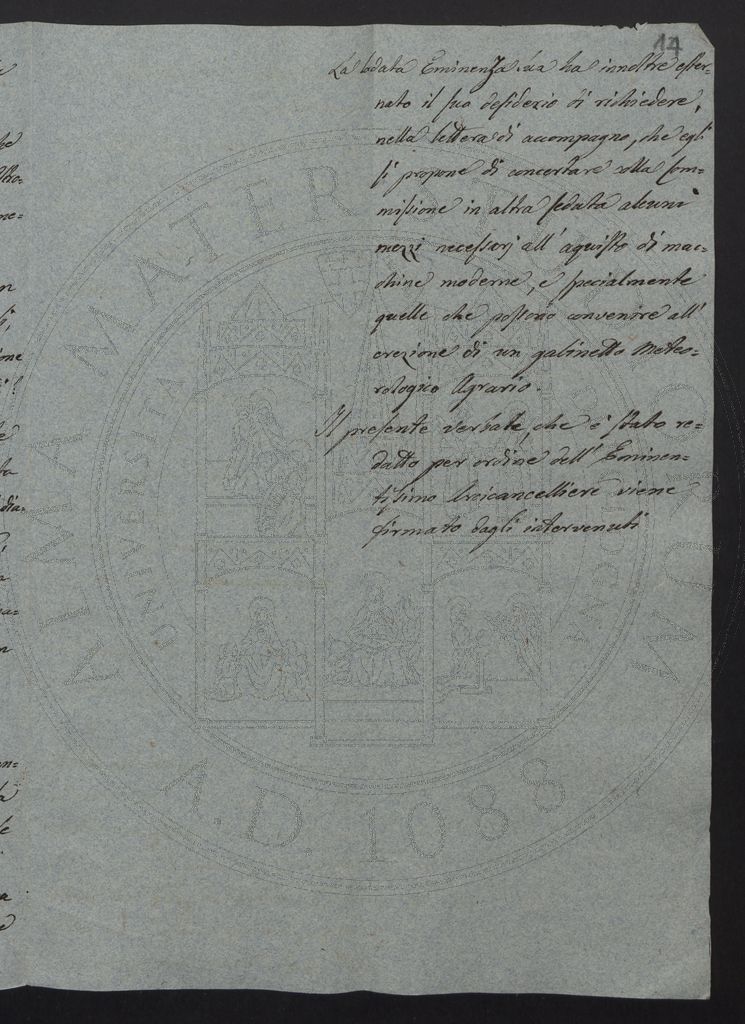 14
La lodata Eminenza Sua ha innoltre ester-
nato il suo desiderio di richiedere,
nella lettera di accompagno, che egli
si propone di concertare colla Com-
missione in altra seduta alcuni
mezzi necessarj all' aquisto di mac-
chine moderne, e specialmente
quelle che possono convenire all'
erezione di un gabinetto Meteo-
rologico Agrario.
Il presente verbale, che è stato re-
datto per ordine dell' Eminen-
tissimo Arcicancelliere viene
firmato dagli intervenuti
ALMA MATER STUDIORUM
A.D. 1088